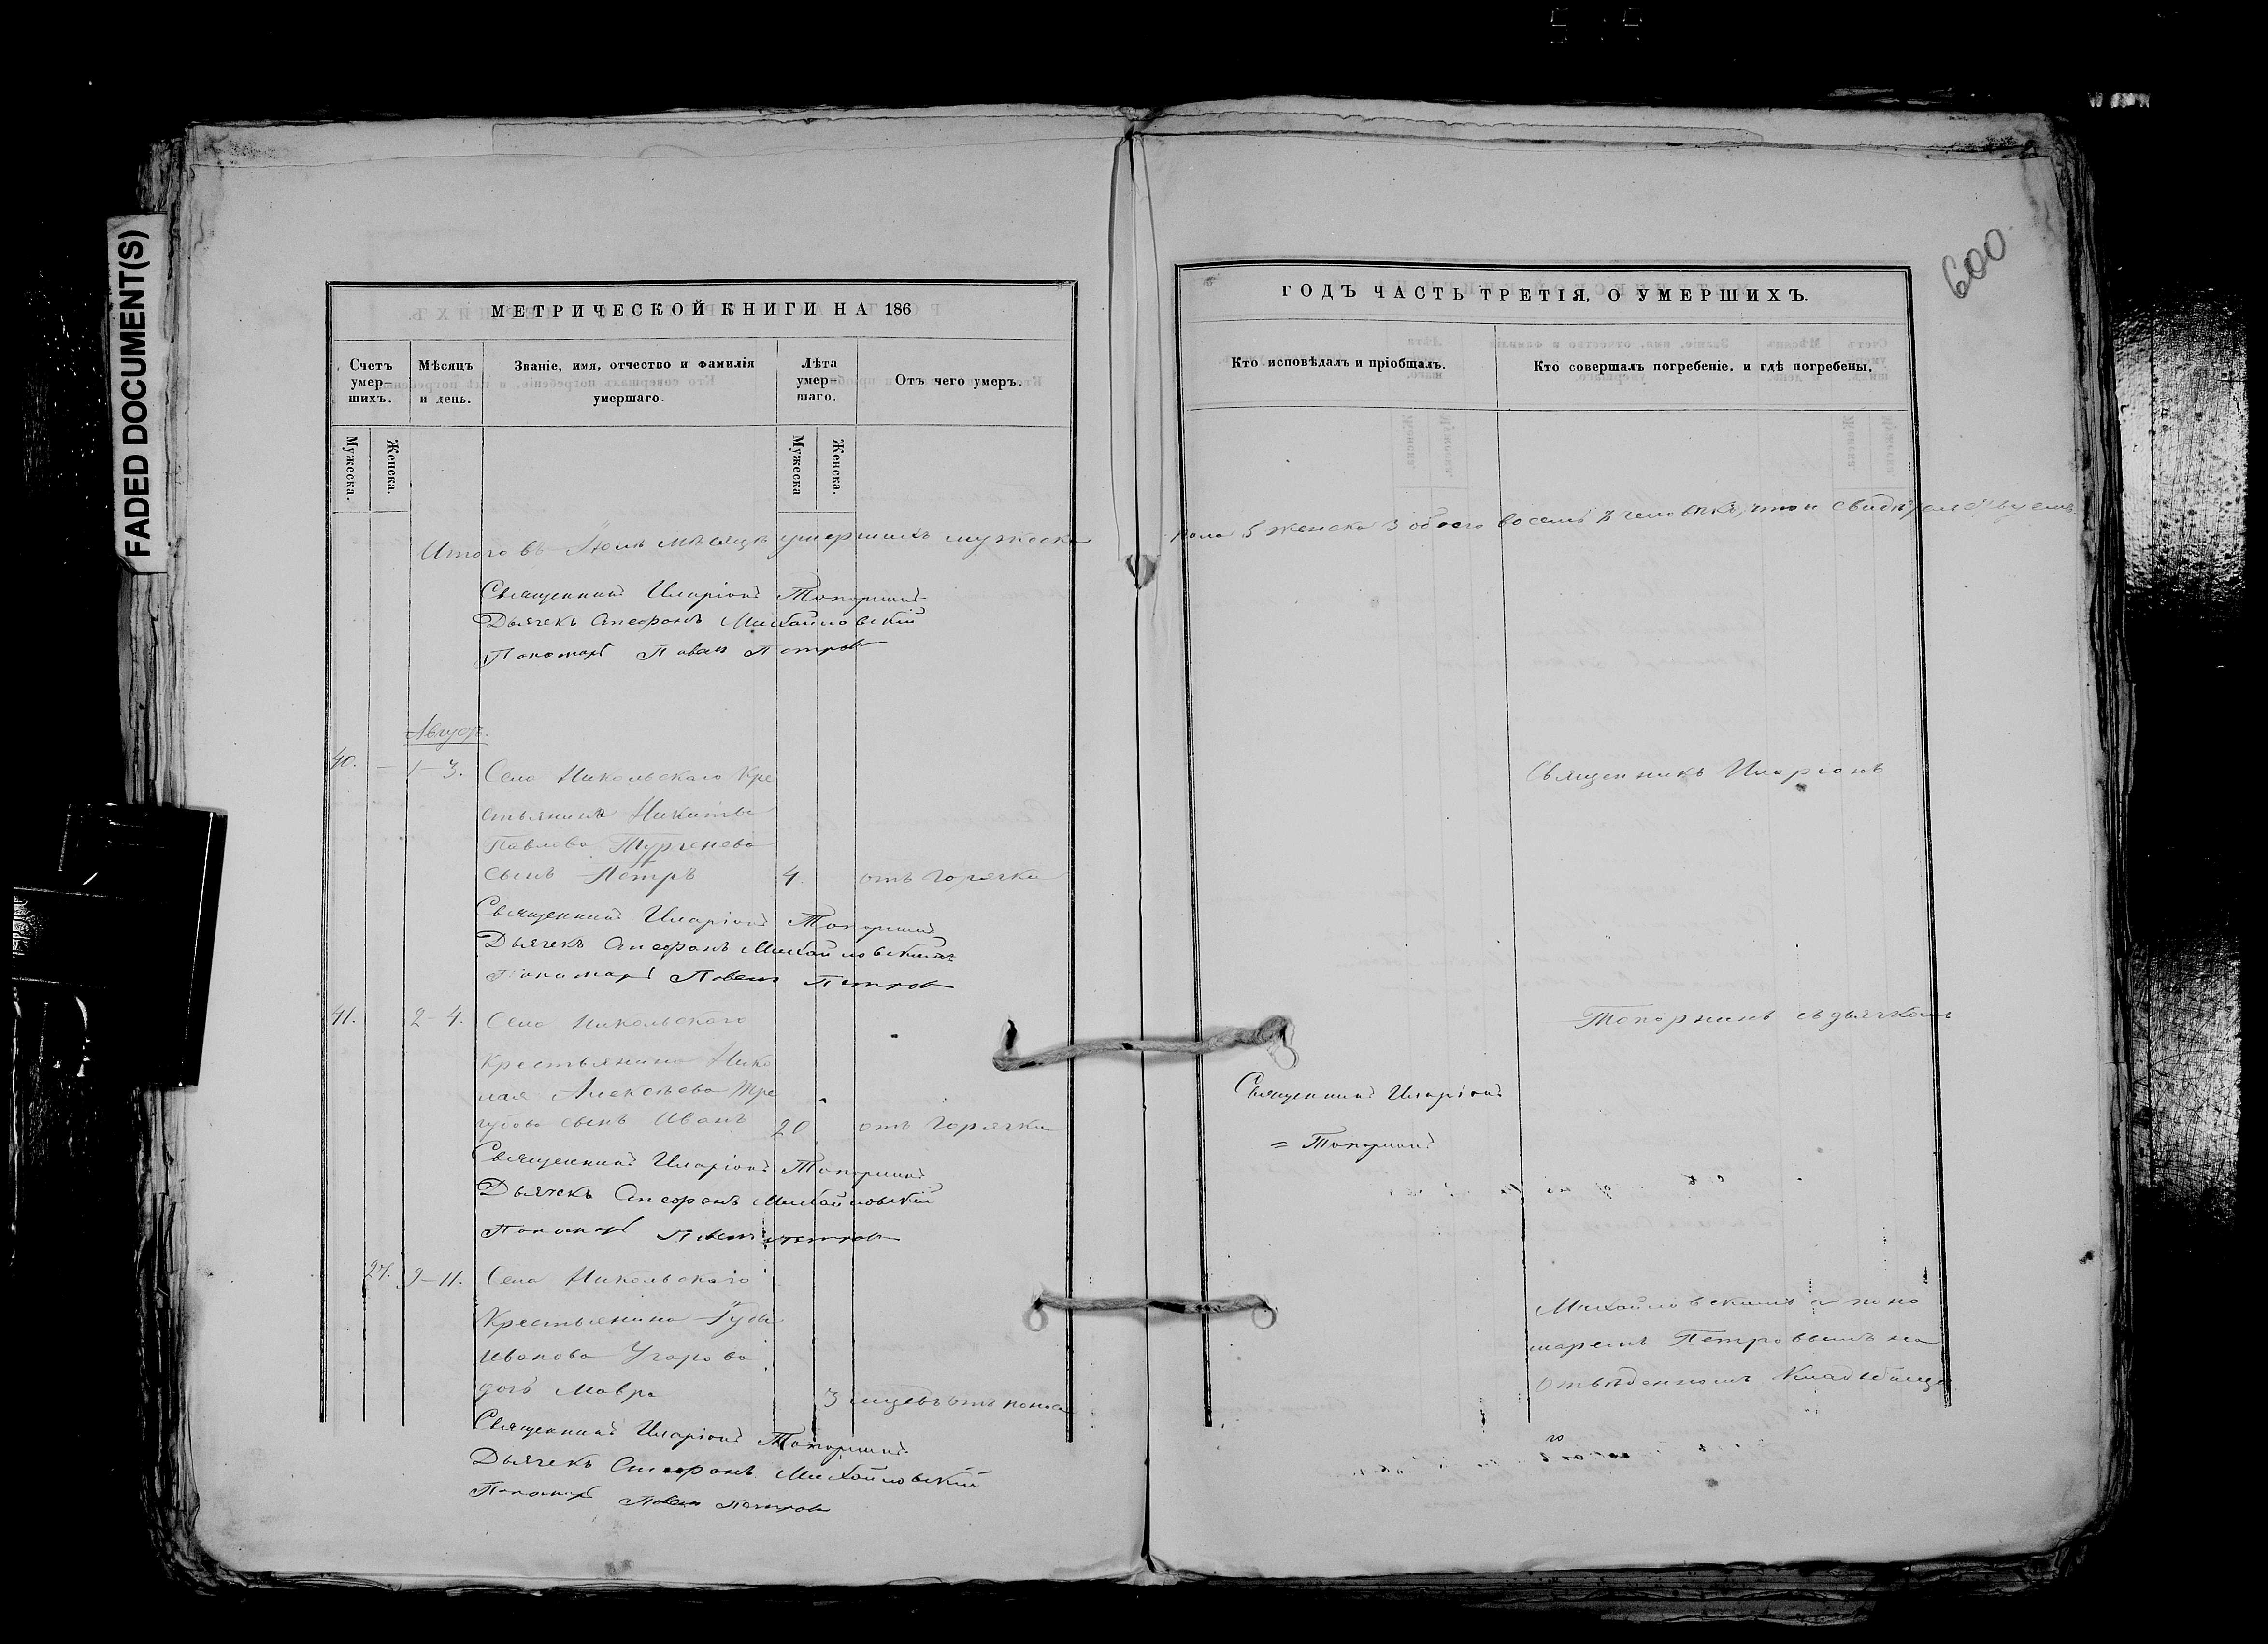 FADED DOCUMENT(S)
МЕТРИЧЕСКОЙ КНИГИ НА 186
Счетъ умер-шихъ.
Мѣсяцъ и день.
Званіе, имя, отчество и фамилія умершаго.
Лѣта умер-шаго.
Отъ чего умеръ.
Мужеска.
Женска.
Мужеска
Женска.
Итого въ Іюлѣ мѣсяцѣ умершихъ мужеска
Священникъ Иларіонъ Топорнинъ
Дьячекъ Михайловскій
Пономарь Павелъ Петровъ
Августъ.
40. — 1–3. Села Никольскаго Кре
стьянина Никиты
Павлова Тургенева
сынъ Петръ 4. отъ горячки
Священникъ Иларіонъ Топорнинъ
Дьячекъ Михайловскій
Пономарь Павелъ Петровъ
41. 2–4. Села Никольскаго
крестьянина Нико
лая Алексѣева Тре
губова сынъ Иванъ 20 отъ горячки
Священникъ Иларіонъ Топорнинъ
Дьячекъ Михайловскій
Пономарь Павелъ Петровъ
27. 9–11. Села Никольскаго
Крестьянина
Иванова Угарова
дочь Мавра 3 отъ поноса
Священникъ Иларіонъ Топорнинъ
Дьячекъ Михайловскій
Пономарь Павелъ Петровъ
600
ГОДЪ ЧАСТЬ ТРЕТІЯ, О УМЕРШИХЪ.
Кто исповѣдалъ и пріобщалъ.
Кто совершалъ погребеніе, и гдѣ погребены,
пола 5 женска 3 обоего восемь человѣкъ, что и свидѣтельствуемъ
Священникъ Иларіонъ
Топорнинъ съ дьячкомъ
Священникъ Иларіонъ
= Топорнинъ
Михайловскимъ и поно
маремъ Петровымъ на
отведенномъ кладбищѣ